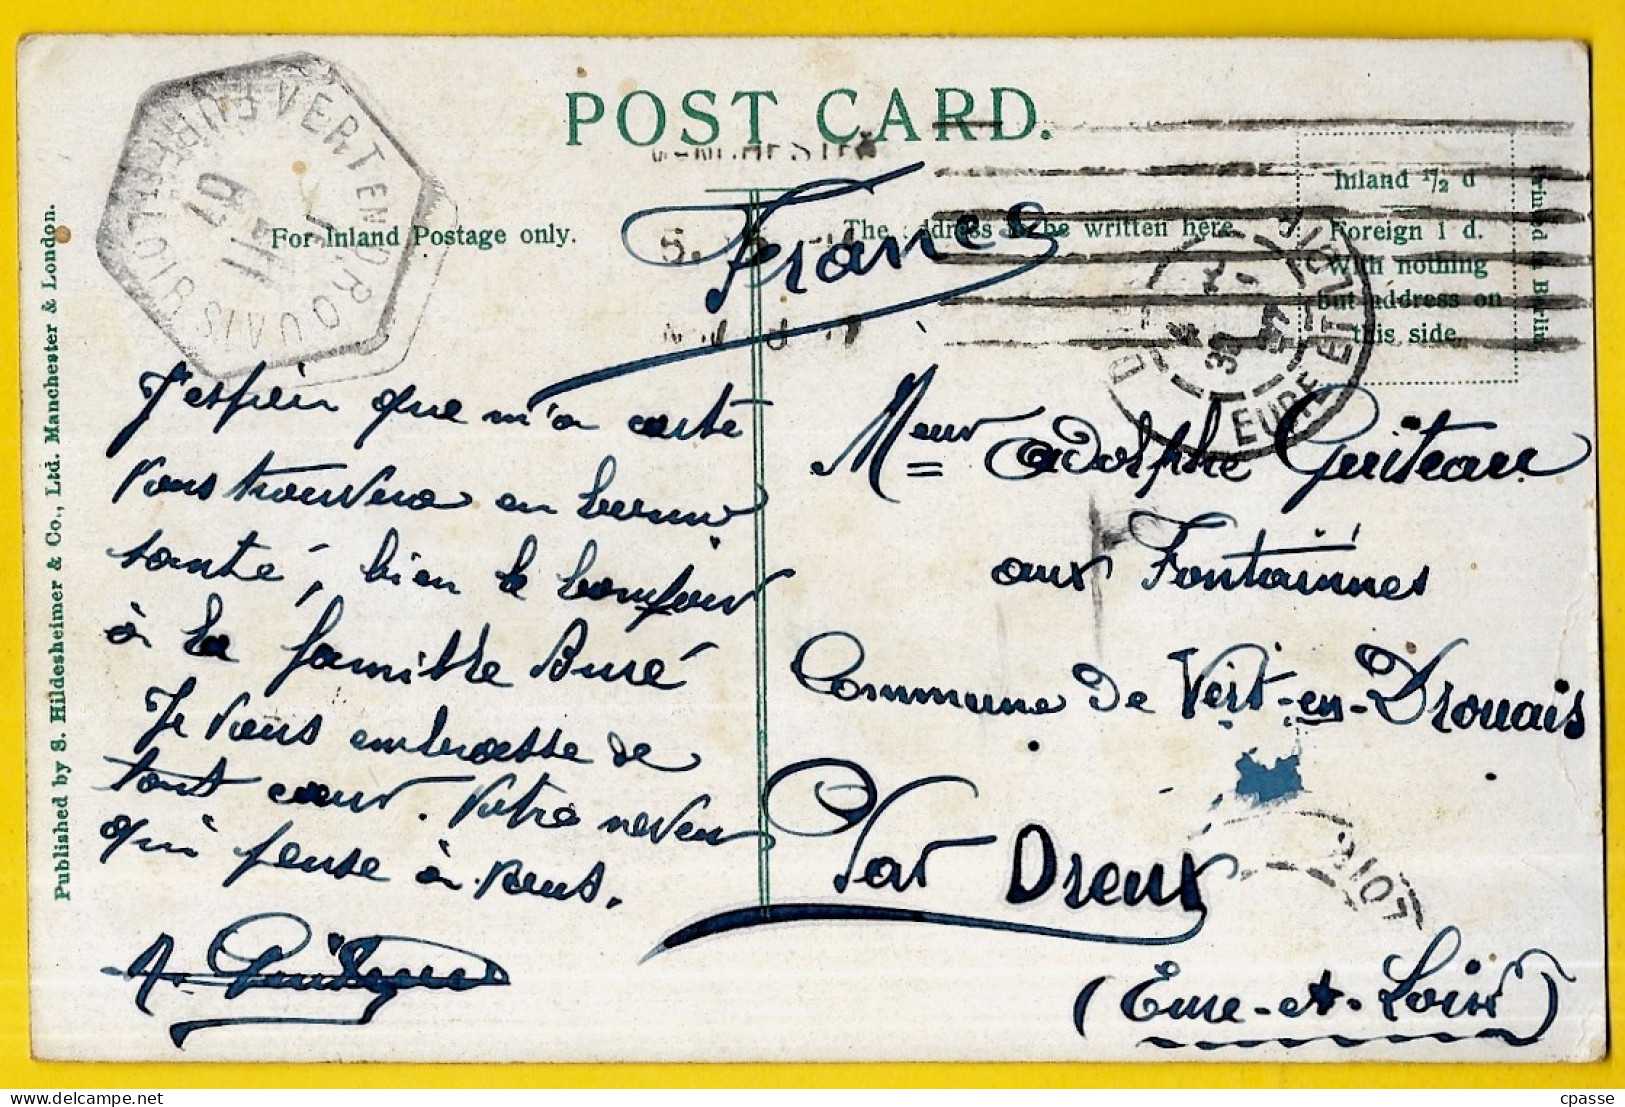 POST CARD.
MANCHESTER
VERT EN DROUAIS
EURE ET LOIR
11
07
For Inland Postage only.
The address to be written here
Inland ½ d
Foreign 1 d.
With nothing
but address on
this side.
Printed in Berlin
France
EURE ET LOIR
30
07
Published by S. Hildesheimer & Co., Ltd. Manchester & London.
J'espèir que m'a carte
Vous trouvera en bonne
santé, bien le bonjour
à la famille Buré
Je Vous embrasse de
tout cœur. Votre neveu
qui pense à Vous.
A. Guiteau
Meur Adolphe Guiteau
aux Fontainnes
Commune De Vert-en-Drouais
Par Dreux
LOIR
(Eure-et-Loir)
cpasse